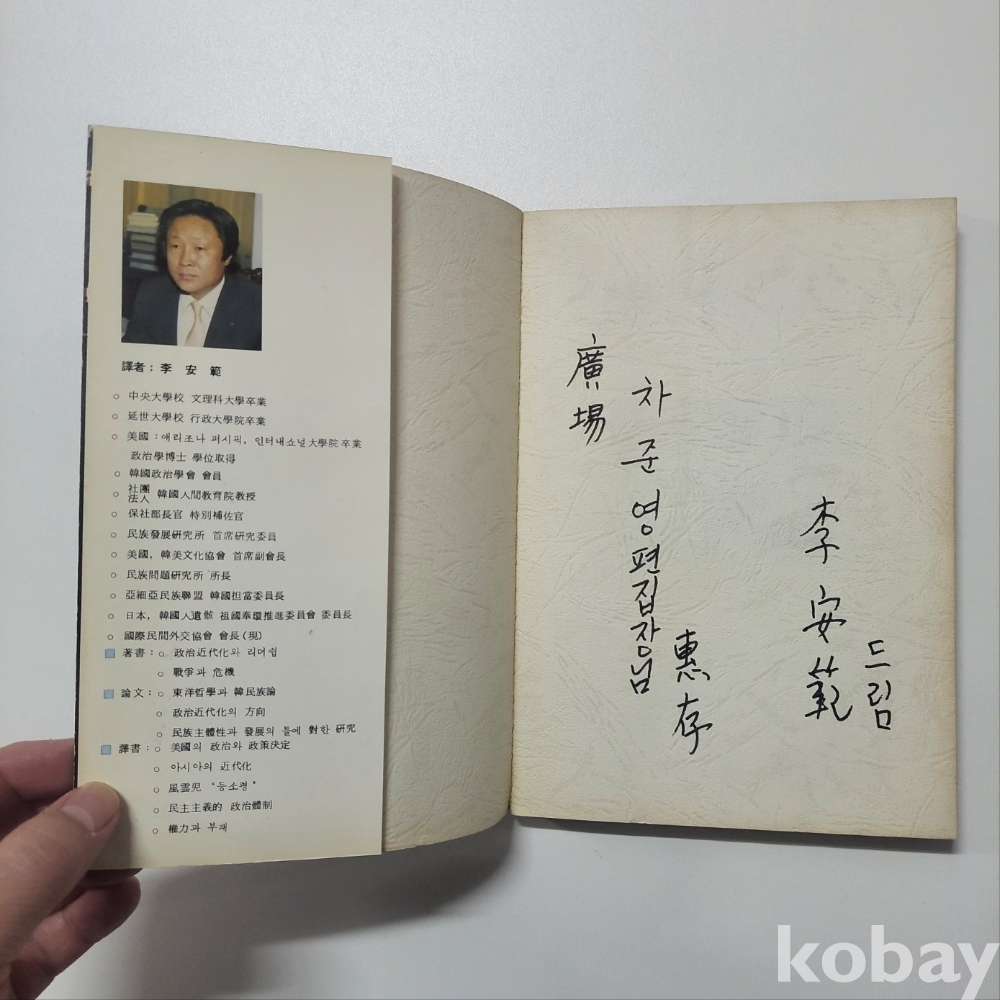 譯者: 李 安 範
中央大學校 文理科大學卒業
延世大學校 行政大學院卒業
美國: 애리조나 퍼시픽, 인터내쇼널大學院卒業
政治學博士 學位取得
韓國政治學會 會員
社團法人 韓國人間敎育院敎授
保社部長官 特別補佐官
民族發展硏究所 首席硏究委員
美國, 韓美文化協會 首席副會長
民族問題硏究所 所長
亞細亞民族聯盟 韓國担當委員長
日本, 韓國人遺骸 祖國奉還推進委員會 委員長
國際民間外交協會 會長(現)
著書: 政治近代化와 리더쉽
戰爭과 危機
論文: 東洋哲學과 韓民族論
政治近代化의 方向
民族主體性과 發展의 틀에 對한 硏究
譯書: 美國의 政治와 政策決定
아시아의 近代化
風雲児 '등소평'
民主主義的 政治體制
權力과 부패
廣場
차준영편집장님
惠存
李安範
드림
kobay